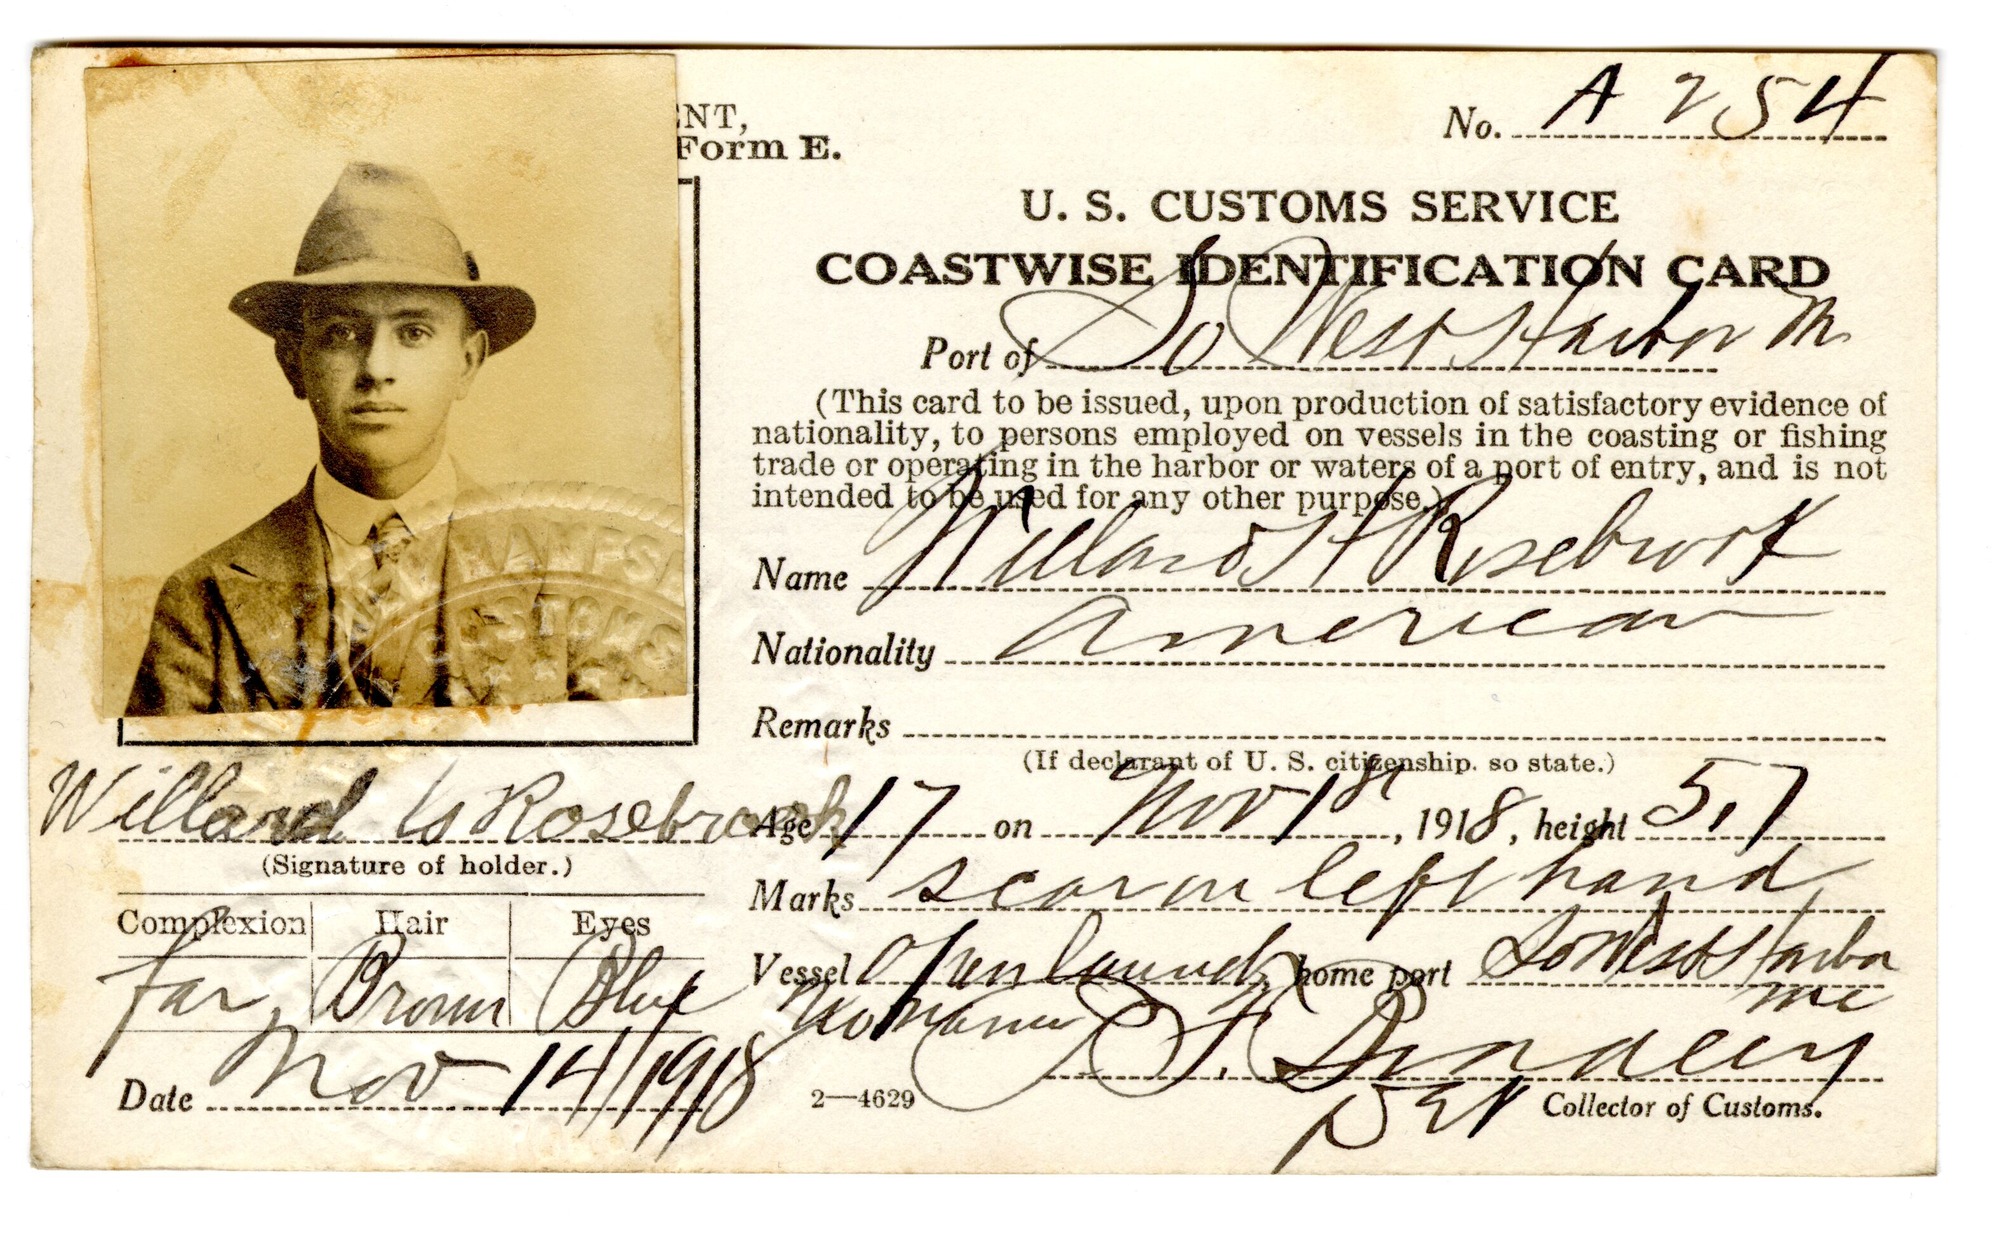 ENT,
Form E.
No. A 254
U. S. CUSTOMS SERVICE
COASTWISE IDENTIFICATION CARD
Port of So West Harbor Me
(This card to be issued, upon production of satisfactory evidence of
nationality, to persons employed on vessels in the coasting or fishing
trade or operating in the harbor or waters of a port of entry, and is not
intended to be used for any other purpose.)
Name Willard H Rosebrook
Nationality American
Remarks
(If declarant of U. S. citizenship, so state.)
Age 17 on Nov 1st, 1918, height 5,7
Marks scar on left hand
Vessel Open launch home port So West Harbor
me
CUSTOMS
Willard Rosebrook
(Signature of holder.)
Complexion Hair Eyes
Brown Blue
Date Nov 14/1918
2—4629
Collector of Customs.